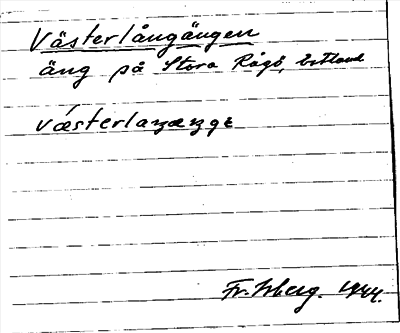 Västerlångängen
äng på Stora Rågö, Estland
västerlaŋæŋgε
Fr. Isberg. 1944.